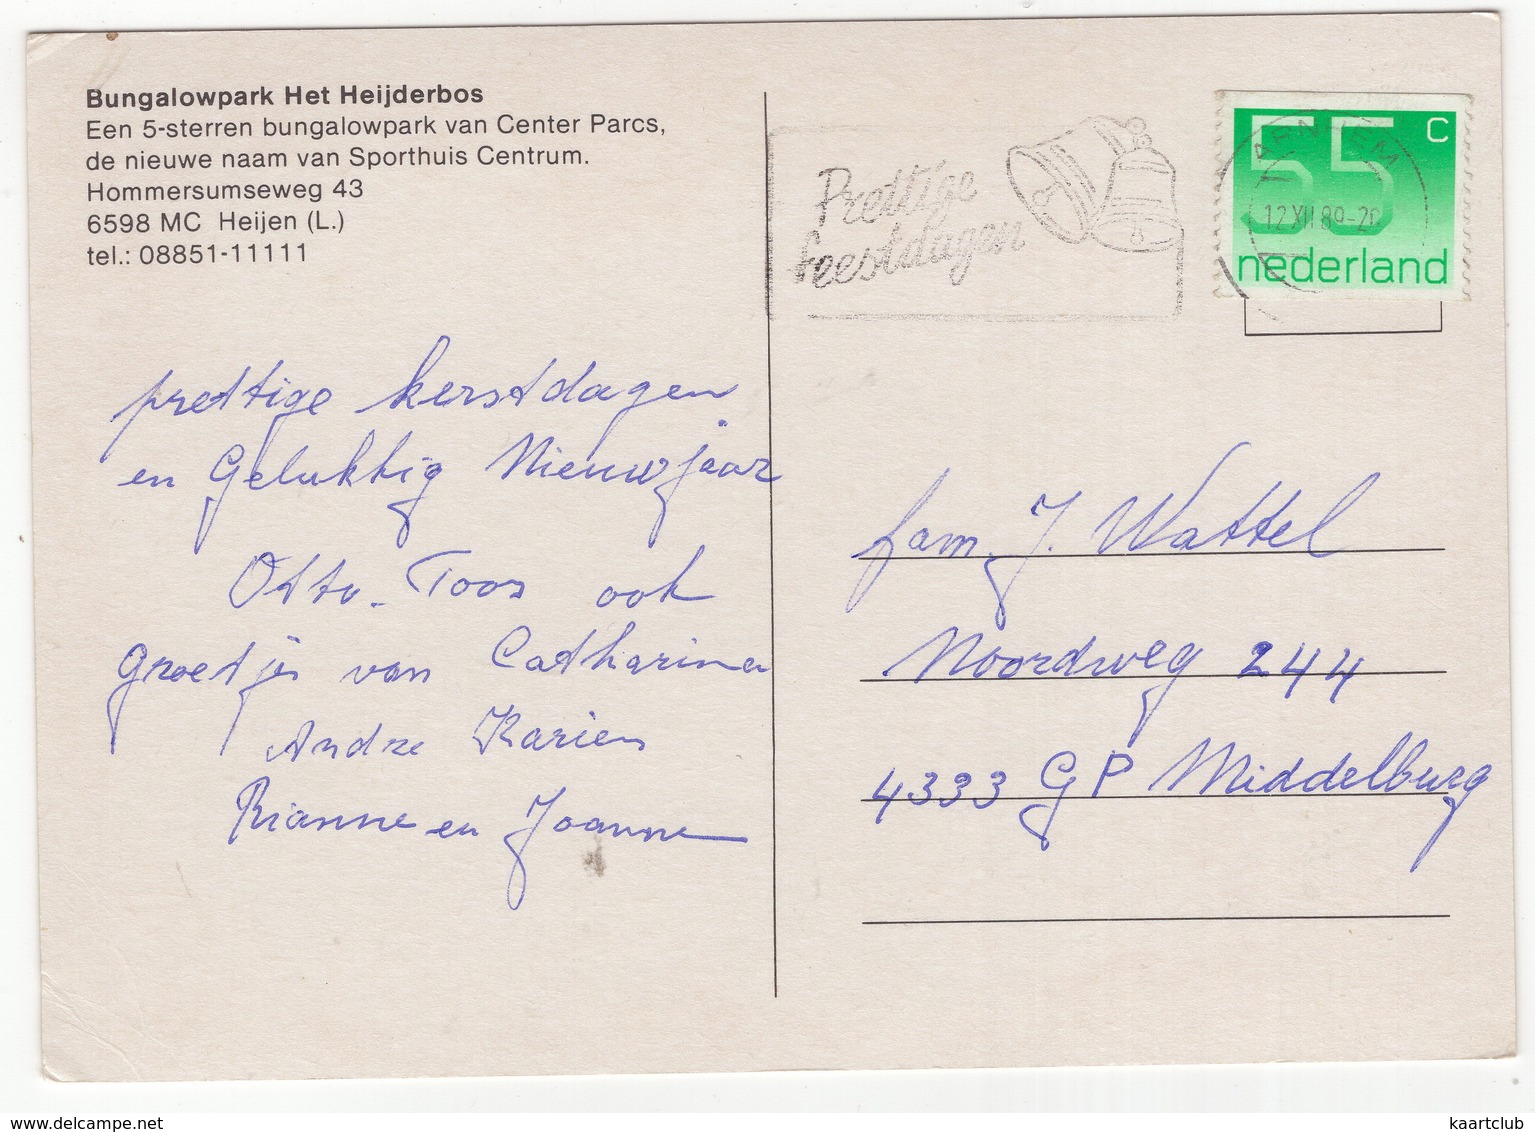 Bungalowpark Het Heijderbos
Een 5-sterren bungalowpark van Center Parcs,
de nieuwe naam van Sporthuis Centrum.
Hommersumseweg 43
6598 MC Heijen (L.)
tel.: 08851-11111
Prettige
feestdagen
ARNHEM
12 XII 89-20
55 C
nederland
prettige kerstdagen
en Gelukkig Nieuwjaar
Otto. Toos ook
groetjes van Catharina
Andre Karien
Rianne en Joanne
fam. J. Wattel
Noordweg 244
4333 GP Middelburg
delcampe.net
kaartclub